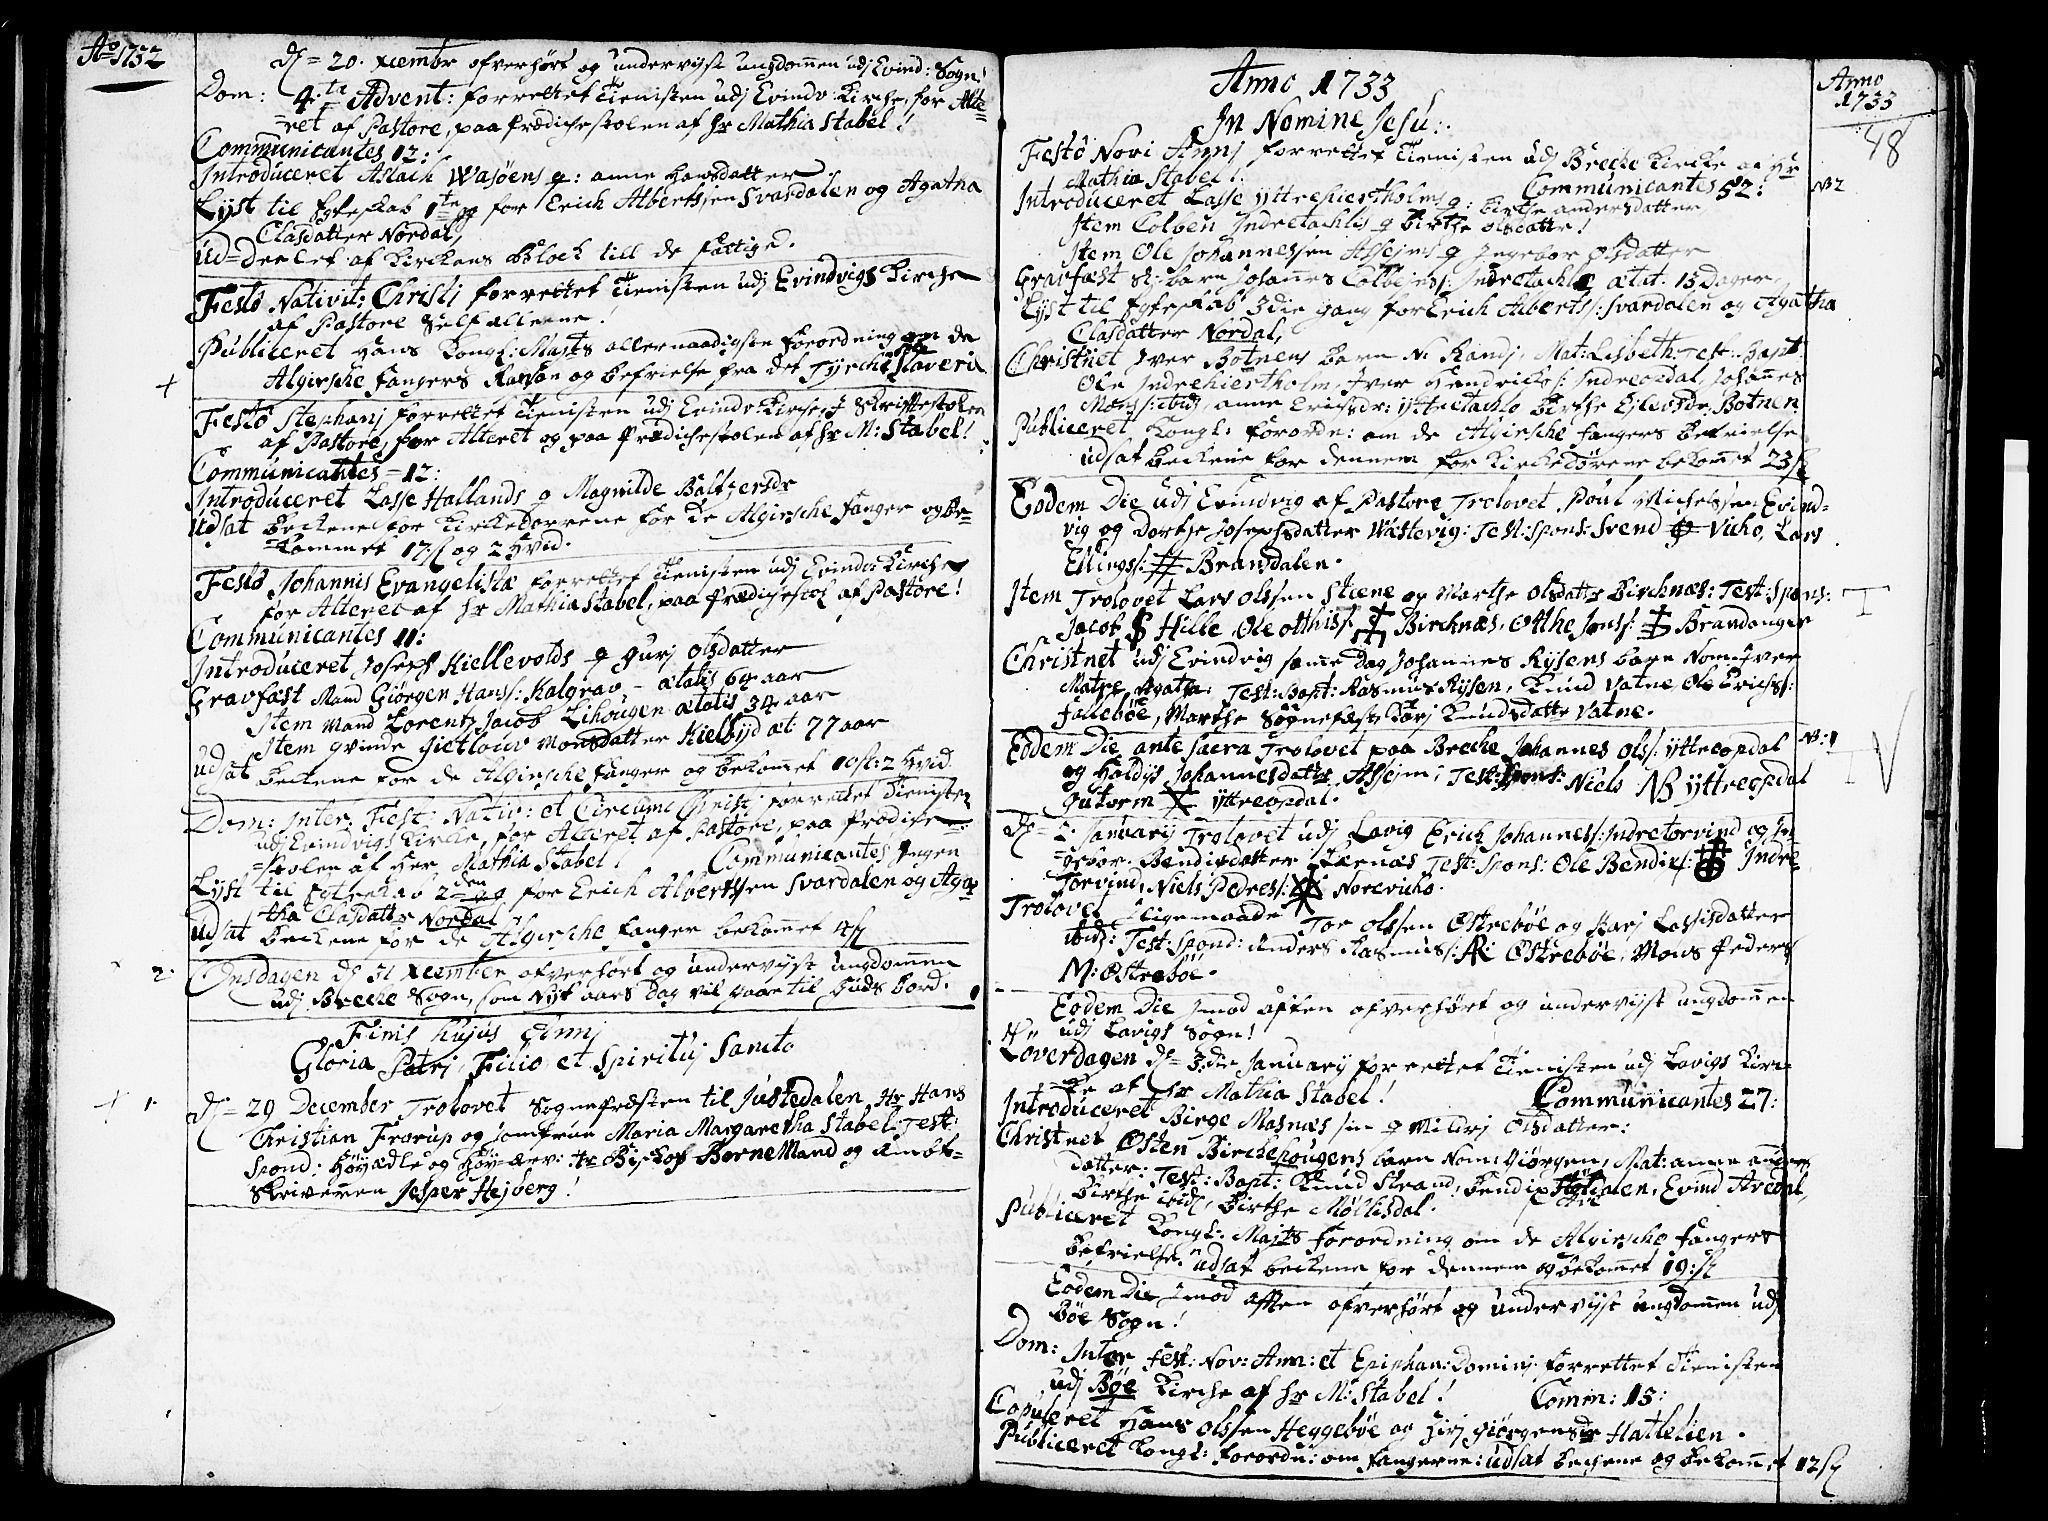 Ao 1732
d = 20. xcembr ofverhørt og undervijst ungdommen udj Evind: Sogn!
Dom: 4.te Advent: forrettet Tienisten udj Evindv: Kirche, for Alte=
=ret af Pastore, paa Prædichestolen af Hr Mathia Stabel!
Communicantes 12:
Introduceret Aslach Wasøens q: anne Hansdatter
Lyst til Egteskab 1te g for Erich Albertssen Svardalen og Agatha
Clasdatter Nordal,
Ud=deelet af Kirckens Block till de fattige.
Festo Nativit: Christj forrettet Tienisten udj Evindvigs Kirche
af Pastore Self alleene!
Publiceret Hans Kongl: Majts allernaadigste forordning om de
Algirsche fangers Ranson og befrielse fra det Tyrchische Slaveri
+
Festo Stephanj forrettet Tienisten udj Evindv: Kirche, I Skriftestolen
af Pastore, for Alteret og paa Prædichestolen af Hr M: Stabel!
Communicantes = 12:
Introduceret Lasse Hallands q Magnilde Baltzersdr
Udsat Beckene for Kirckedørrene for de Algirsche fanger og be=
=kommet 17 ß og 2 Hvid.
Festo Johannis Evangelistæ forrettet Tienisten udj Evindv: Kirche
for Alteret af Hr Mathia Stabel, paa Prædichestol af Pastore!
Communicantes 11:
Introduceret Joseph Kiellevolds q gurj Olsdatter
Gravfæst Mand Giørgen Hans: Kalgrav, - ætatis 64 aar
Item Mand Lorentz Jacob Lihougen ætatis 34 aar
Item qvinde giertouw Monsdatter Kielbyd æt 77 aar
udsat beckene for de Algirsche fanger og bekommet 10 ß: 2 Hvid
Dom: Inter Fest: Nativ: et Circumc Christj forrettet Tienisten
udj Evindvigs Kirke, for Alteret af Pastore, paa Prædiche=
=stolen af Her Mathia Stabel! Communicantes Ingen
Lyst til Egteskab 2den g for Erich Albertssen Svardalen og Aga=
tha Clasdatter Nordal
Udsat beckene for de Algirsche fanger bekommet 4 ß
2. Onsdagen d 31 xcember ofverhørt og undervijst ungdommen
udj Breche Sogn, som Nyt aars Dag vil gaae til Guds bord.
Finis hujus Annj
Gloria Patrj, Filio et Spirituj Sancto
+ 1. d = 29 December Trolovet Sognepræsten til Justedalen, Hr Hans
Christian Frorup og Jomfrue Maria Margaretha Stabel. Test:
Spond: Høyædle og Høy=ærv: Hr Biskop Bornemand og Ambt=
Skriveren Jesper Hejberg!
Anno 1733
Anno
1733
48
In Nomine Jesu:
Festo Novi Annj forrettet Tienisten udj Breche Kircke af Hr
Mathia Stabel! Communicantes 52:
NB 2
Introduceret Lasse Yttrehiertholms q: birthe andersdatter
Item Colben Indretachlis q Birthe Olsdatter!
Item Ole Johannessen Assejms q Ingebor Olsdatter
Gravfæst Sl: barn Johannes Colbens: Indretachle ætat. 15 Dager
Lyst til Egteskab 3die gang for Erich Alberts: Svardalen og Agatha
Clasdatter Nordal,
Christnet Iver Botnens barn N. Randj, Mat: Lisbeth: Test: Bapt
Ole Indrehiertholm, Iver Hendrichs: Indreopdal, Johannes
Mons: ibid, anne Erichsdr: Yttretachlo Birthe Ejlersdr Botnen
Publiceret Kongl: forordn: om de Algirsche fangers befrielse
udsat beckene for dennem for Kirckedørene bekommet 23 ß
Eodem Die udj Evindvig af Pastore Trolovet Poul Michelssen Evind=
vig og Dorthe Josephsdatter Wastevig: Test: Spons: Svend Vicho, Lars
Ellings: # Brandalen.
Item Trolovet Lars Olssen Stiene og Marthe Olsdattr Bircknæs: Test: Spons:
Jacob Hille, Ole Otthis: Bircknæs, Otthe Jons: Brandanger
Christnet udj Evindvig samme Dag Johannes Rysens barn Nom: Iver
Matre Agatha: Test: Bapt: Rasmus Rysen, Knud Vatne, Ole Erichs:
Fallebøe, Marthe Sognefæst, Karj Knudsdatter Vatne.
Eodem Die ante Sacra Trolovet paa Breche Johannes Ols: Yttreopdal
NB: 1
og Holdys Johannesdatter Assejm: Test: Spons: Niels NB Yttreopdal
Gutorm Yttreopdal.
d = 2. Januarij Trolovet udj Lavig Erich Johannes: Indretorvind og In=
=gebor Bendixdatter Kærnæs Test: Spons: Ole Bendix: Indre=
Torvind, Niels Peders: Norevicho.
Trolovet Iligemaade Tor Olssen Østrebøe og Karj Lassisdatter
ibid: Test: Spond: Anders Rasmus: AR Østrebøe, Mons Peders
M: Østrebøe.
Eodem Die Imod aften ofverhørt og undervijst ungdommen
udj Lavigs Sogn!
Løverdagen d = 3die Januarij forrettet Tienisten udj Lavigs Kirc=
=ke af Hr Mathia Stabel! Communicantes 27:
Introduceret Birge Masnæs sin q Mildrj Olsdatter:
Christnet Østen Birchehougens barn Nom: Giørgen, Mat: anne anders
datter: Test: Bapt: Knud Strand, Bendix , Evind Avedal,
Birthe ibid, Birthe Møllisdal.
Publiceret Kongl: Majts forordning om de Algirsche fangers
befrielse. udsat beckene for dennem og bekommet 19: ß
Eodem Die Imod aften ofverhørt og undervijst ungdommen udj
Bøe Sogn!
Dom: Inter Fest: Nov: Ann: et Epiphan: Dominj forrettet Tienisten
udj Bøe Kirche af Hr M: Stabel! Comm: 15:
Copuleret Hans Olssen Heggebøe og Sirj Giørgensdr Hattelien.
Publiceret Kongl: forordn: om fangerne: udsat beckene og bekommet 12 ß